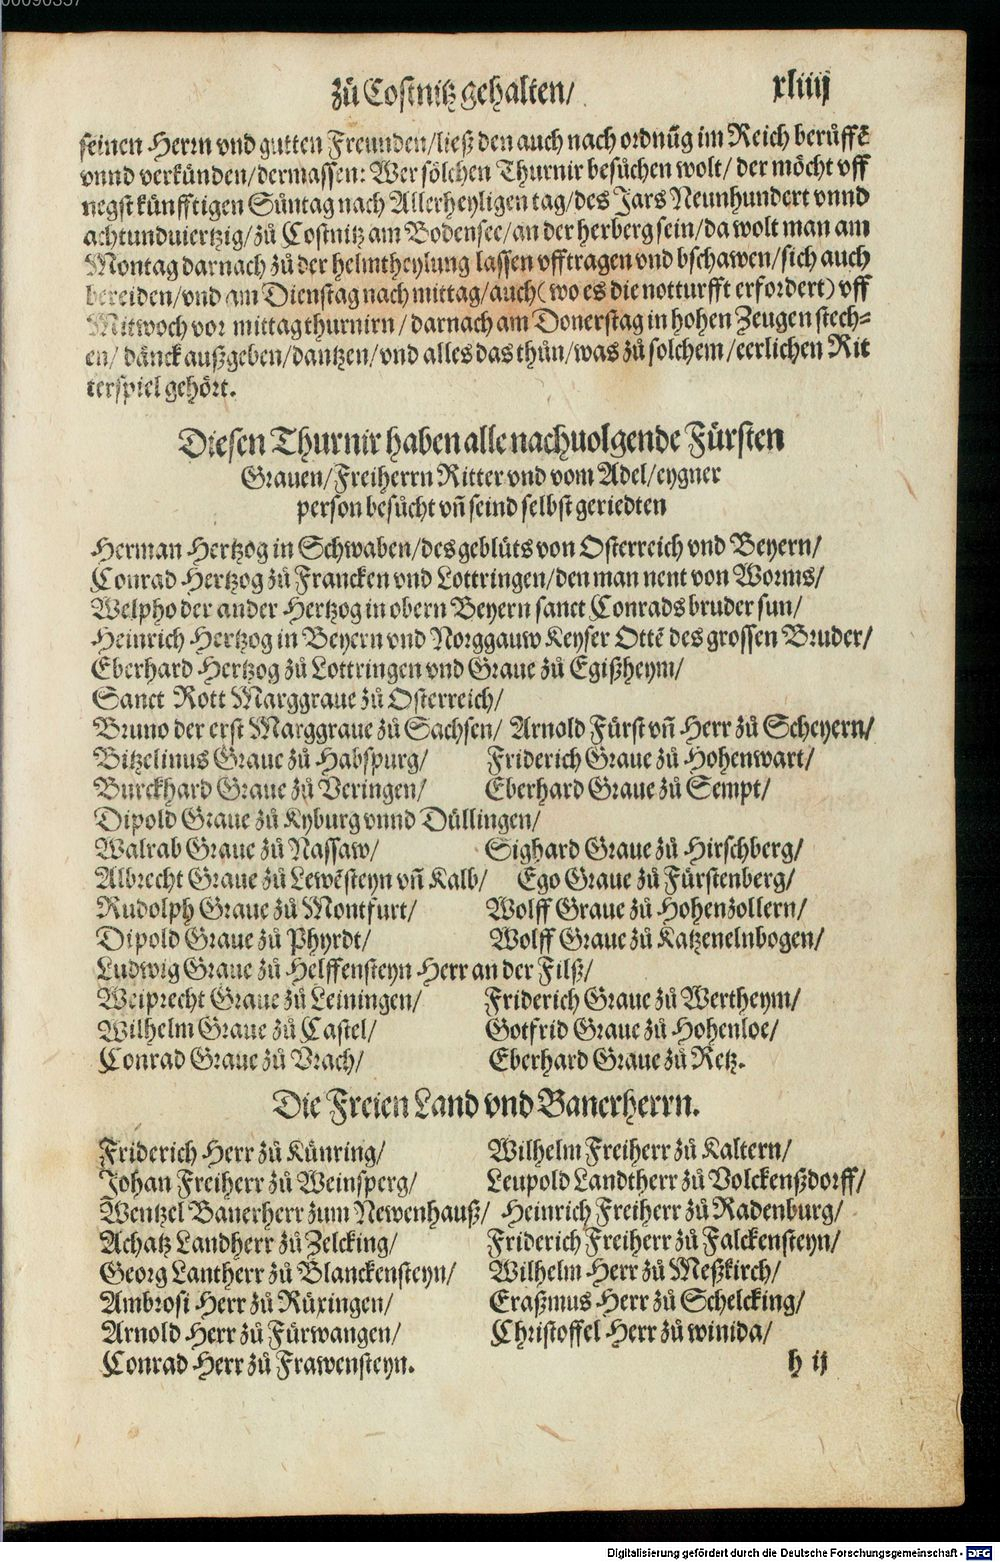 00090357
zů Costnitz gehalten/ xliiij
seinen Herrn vnd gutten Freunden/ließ den auch nach ordnũg im Reich berůffẽ
vnnd verkünden/dermassen: Wer sölchen Thurnir besůchen wolt/ der möcht vff
negst künfftigen Sůntag nach Allerheyligen tag/des Jars Neunhundert vnnd
achtundviertzig/zů Costnitz am Bodensee/an der herberg sein/da wolt man am
Montag darnach zů der helmtheylung lassen vfftragen vnd bschawen/sich auch
bereiden/vnd am Dienstag nach mittag/auch (wo es die notturfft erfordert) vff
Mitwoch vor mittag thurnirn/ darnach am Donerstag in hohen Zeugen stech-
en/ dänck außgeben/dantzen/vnd alles das thůn/was zů solchem/eerlichen Rit
terspiel gehört.
Diesen Thurnir haben alle nachuolgende Fürsten
Grauen/Freiherrn Ritter vnd vom Adel/eygner
person besůcht vñ seind selbst geriedten
Herman Hertzog in Schwaben/des geblüts von Osterreich vnd Beyern/
Conrad Hertzog zů Francken vnd Lottringen/den man nent von Worms/
Welpho der ander Hertzog in obern Beyern sanct Conrads bruder sun/
Heinrich Hertzog in Beyern vnd Norggauw Keyser Ottẽ des grossen Bruder/
Eberhard Hertzog zů Lottringen vnd Graue zů Egißheym/
Sanct Rott Marggraue zů Osterreich/
Bruno der erst Marggraue zů Sachsen/ Arnold Fürst vñ Herr zů Scheyern/
Bitzelinus Graue zů Habspurg/ Friderich Graue zů Hohenwart/
Burckhard Graue zů Veringen/ Eberhard Graue zů Sempt/
Dipold Graue zů Kyburg vnnd Düllingen/
Walrab Graue zů Nassaw/ Sighard Graue zů Hirschberg/
Albrecht Graue zů Lewẽsteyn vñ Kalb/ Ego Graue zů Fürstenberg/
Rudolph Graue zů Montfurt/ Wolff Graue zů Hohenzollern/
Dipold Graue zů Phyrdt/ Wolff Graue zů Katzenelnbogen/
Ludwig Graue zů Helffensteyn Herr an der Filß/
Weiprecht Graue zů Leiningen/ Friderich Graue zů Wertheym/
Wilhelm Graue zů Castel/ Gotfrid Graue zů Hohenloe/
Conrad Graue zů Vrach/ Eberhard Graue zů Retz.
Die Freien Land vnd Banerherrn.
Friderich Herr zů Künring/ Wilhelm Freiherr zů Kaltern/
Johan Freiherr zů Weinsperg/ Leupold Landtherr zů Volckenßdorff/
Wentzel Banerherr zum Newenhauß/ Heinrich Freiherr zů Radenburg/
Achatz Landherr zů Zelcking/ Friderich Freiherr zů Falckensteyn/
Georg Lantherr zů Blanckensteyn/ Wilhelm Herr zů Meßkirch/
Ambrosi Herr zů Rüxingen/ Eraßmus Herr zů Schelcking/
Arnold Herr zů Fürwangen/ Christoffel Herr zů winida/
Conrad Herr zů Frawensteyn. h ij
Digitalisierung gefördert durch die Deutsche Forschungsgemeinschaft - DFG